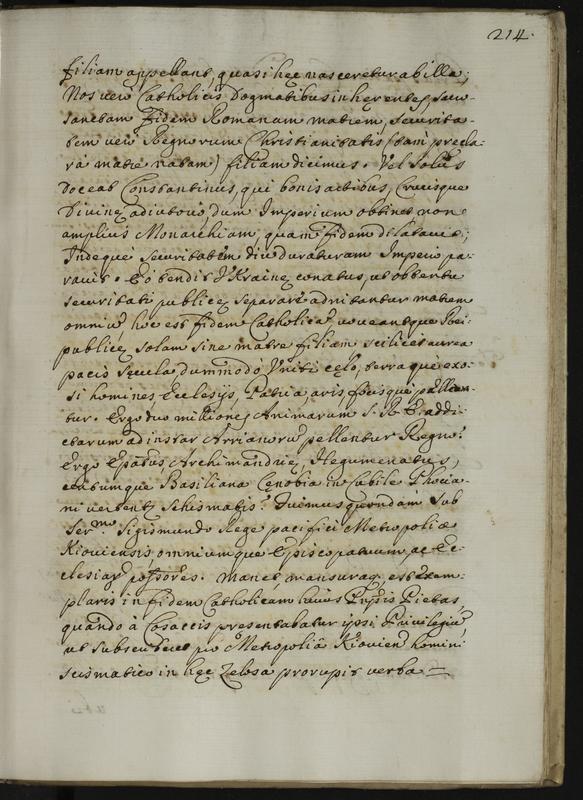 214.
filiam appellant, quasi hęc nasceretur ab illa;
Nos verò Catholicis Dogmatibus inhęrentes, sacro-
sanctam Fidem Romanam matrem, securita-
tem verò Regnorum Christianitatis (tam precla-
rà matre natam) filiam dicimus. Vel solus
doceat Constantinus, qui bonis actibus, Crucisque
Divinę adiutorio, dum Imperium obtinet non
amplius Monarchiam, quam fidem dilatavit;
Indeque securitatem diu duraturam Imperio pa-
ravit. Eo tendit Vkrainę conatus, ut obtentu
securitatis publicę separare adnitantur matrem
omniũ hoc est fidem Catholicã, voveantque Rei-
publicę solam sine matre filiam scilicet aurea
pacis sęcula, dummodo Vniti cęlo, terraque exo-
si homines, Ecclesijs, Patria, aris, focisque pellan-
tur. Ergo duo milliones Animarum S. R. E. addi-
ctarum ad instar Arrianorũ pellentur Regno?
Ergo Epatus, Archimandrię, Hegumenatus,
totumque Basiliana Cęnobia in stabile Photia-
ni vertent Schismatis? Fuimus quondam sub
Sermo. Sigismundo Rege pacifici Metropolię
Kioviensis omniumque Episcopatuum, ac Ec-
clesiarum possores. Manet, mansuraque est exem-
plaris in fidem Catholicam huius Prĩpis Pietas,
quando à Cosaccis presentabatur ipsi Privilegiũ
ut subscriberet pro Metropolia Kiovien homini
scismatico in hęc zelosa prorupit verba =